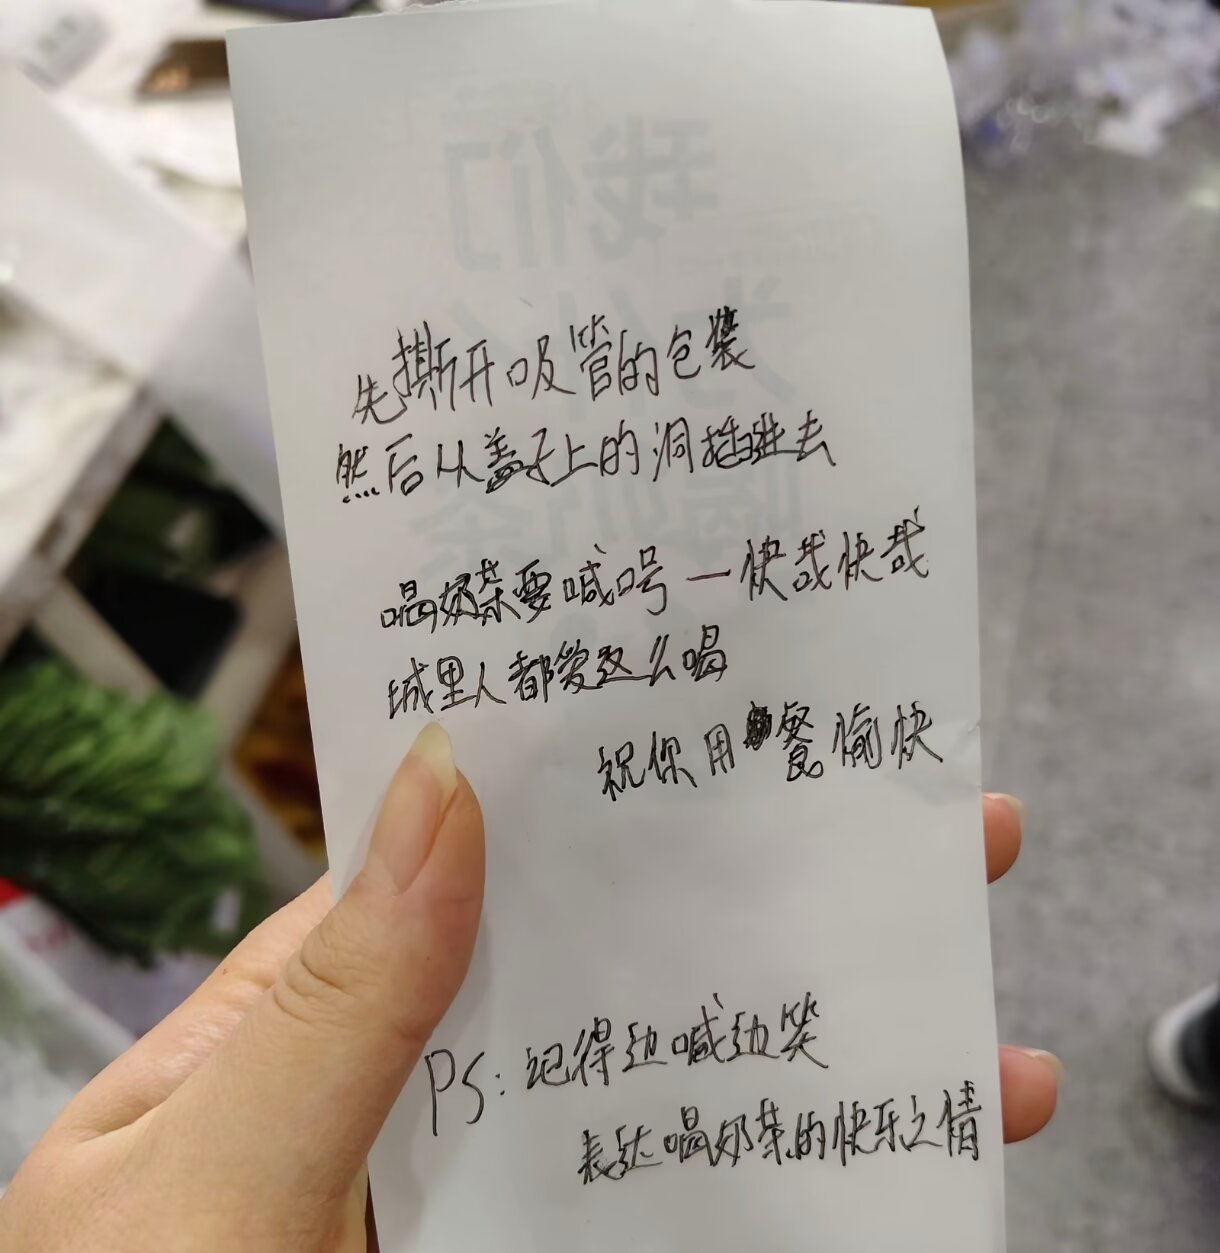 先撕开吸管的包装
然后从盖子上的洞插进去
喝奶茶要喊口号一快哉快哉
城里人都爱这么喝
祝你用餐愉快
PS:记得边喊边笑
表达喝奶茶的快乐之情